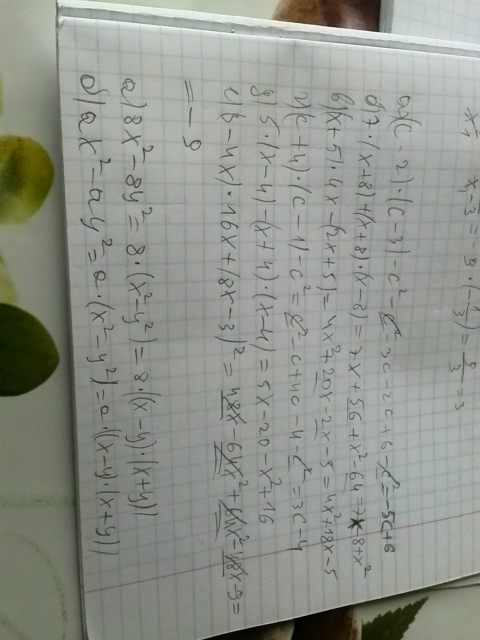 x₁-3/3 = -9·(-1/3) = 9/3 = 3
a)(c-2)·(c-3)-c²=c²-3c-2c+6-c²=-5c+6
б)7·(x+8)+(x+8)·(x-8)=7x+56+x²-64=7x-8+x²
в)(x+5)·4x-(2x+5)=4x²+20x-2x-5=4x²+18x-5
г)(c+4)·(c-1)-c²=c²-c+4c-4-c²=3c-4
д)5·(x-4)-(x+4)·(x-4)=5x-20-x²+16
е)(3-4x)·16x+(8x-3)²=48x-64x²+64x²-48x-9=
=-9
a)8x²-8y²=8·(x²-y²)=8·((x-y)·(x+y))
б)ax²-ay²=a·(x²-y²)=a·((x-y)·(x+y))